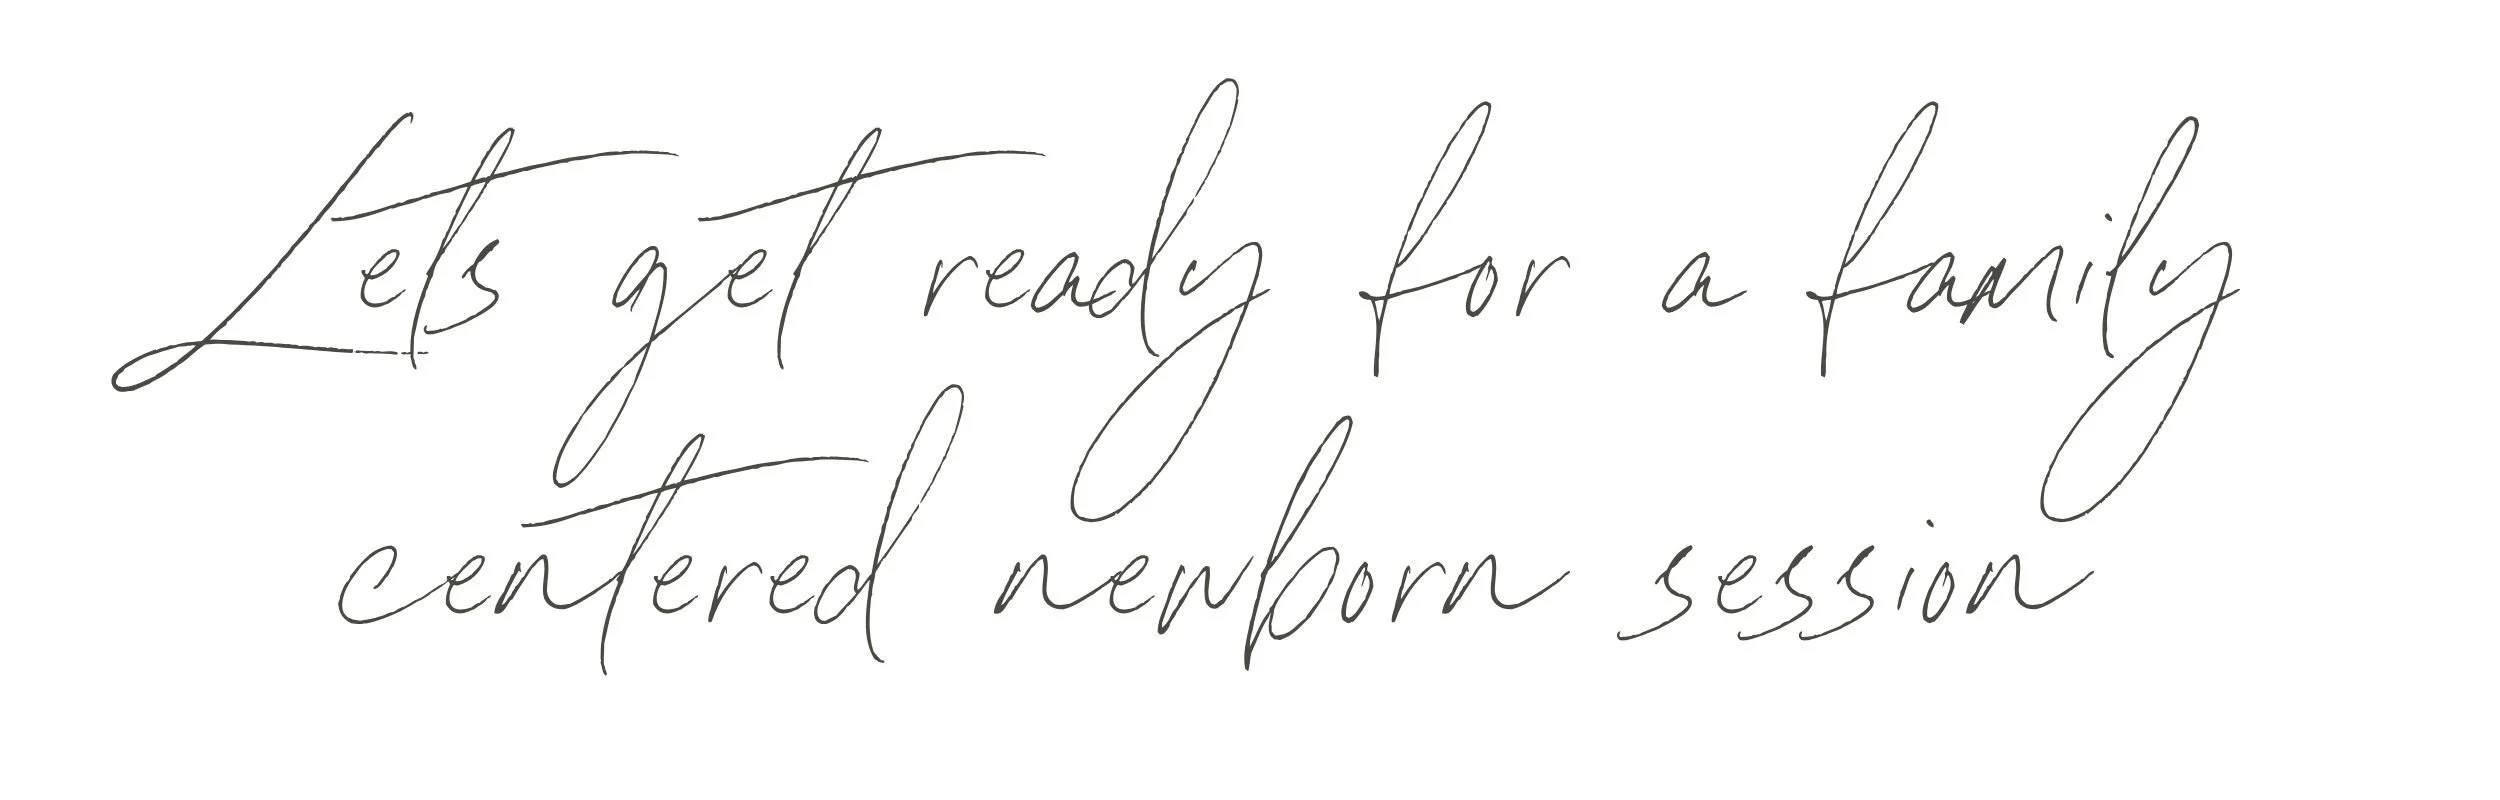 Lets get ready for a family
centered newborn session